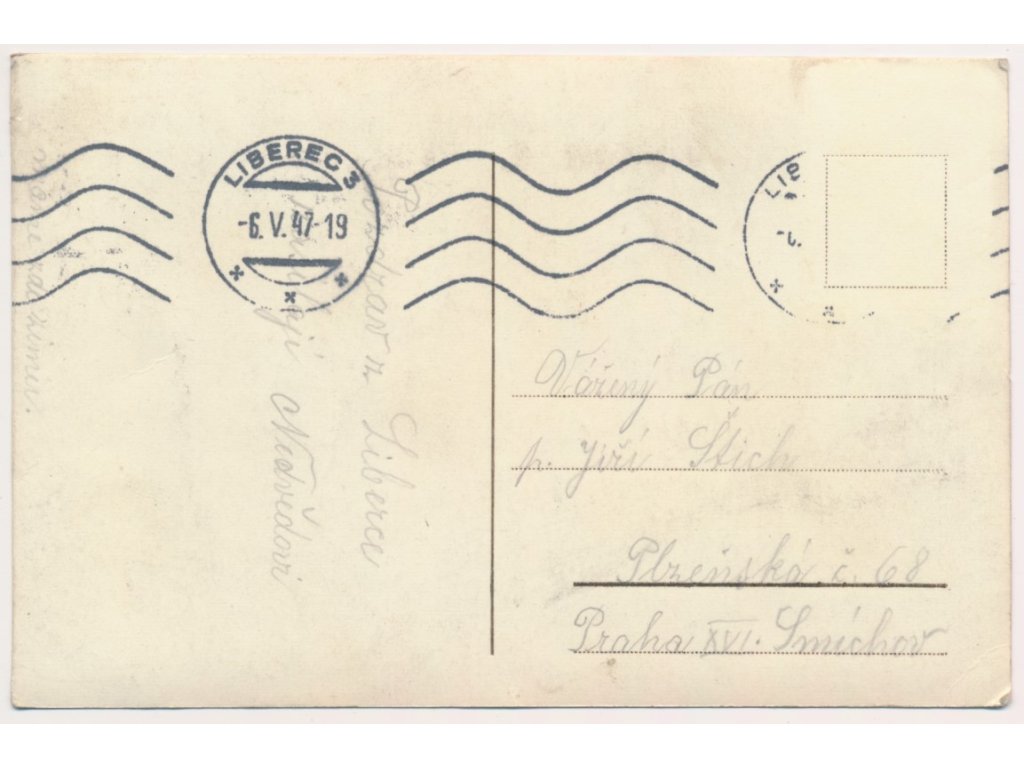 LIBEREC 3
-6. V. 47-19
LIB
Pozdrav z Liberce
Nedvědovi
Vážený Pán
p. Jiří Štich
Plzeňská č. 68
Praha XVI. Smíchov